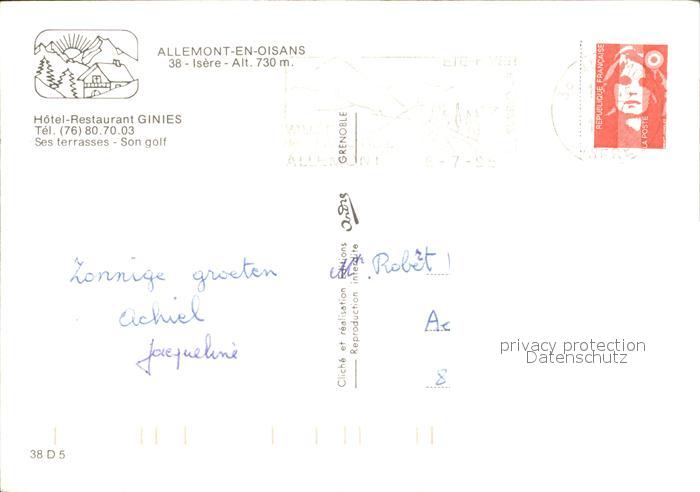 ALLEMONT-EN-OISANS
38 - Isère - Alt. 730 m.
Hôtel-Restaurant GINIES
Tél. (76) 80.70.03
Ses terrasses - Son golf
ALLEMONT
RÉPUBLIQUE FRANÇAISE
LA POSTE
GRENOBLE
André
Cliché et réalisation Éditions
Reproduction interdite
Zonnige groeten
Achiel
Jacqueline
Robèt
Ae
8
privacy protection
Datenschutz
38 D 5